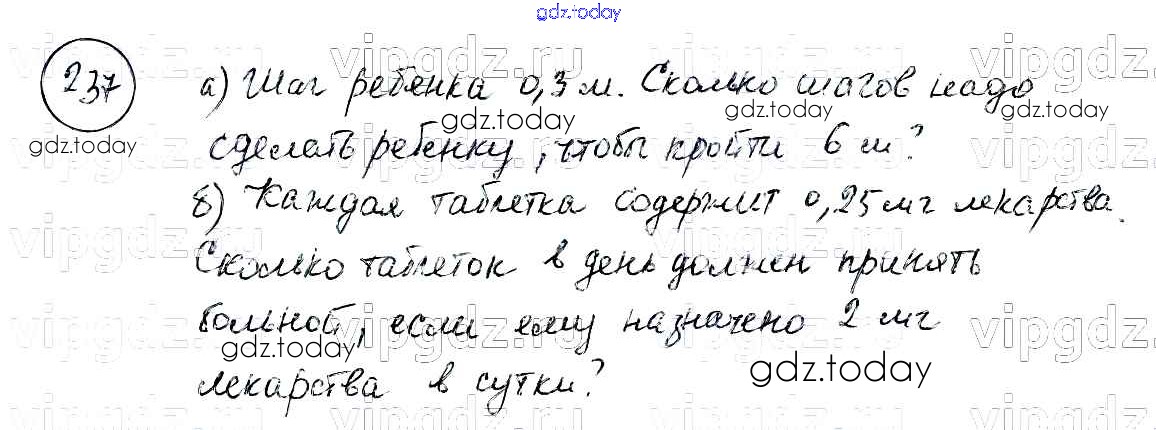 gdz.today
237
а) Шаг ребёнка 0,3 м. Сколько шагов надо
сделать ребёнку, чтобы пройти 6 м?
б) Каждая таблетка содержит 0,25 мг лекарства.
Сколько таблеток в день должен принять
больной, если ему назначено 2 мг
лекарства в сутки?
vipgdz.ru
vipgdz.ru
vipgdz.ru
vipgdz
gdz.today
gdz.today
gdz.today
gdz.today
gdz.today